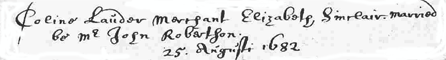 Coline Lauder Merchant Elizabeth Sinclair. married
be Mr John Robertson.
25. Augusti 1682